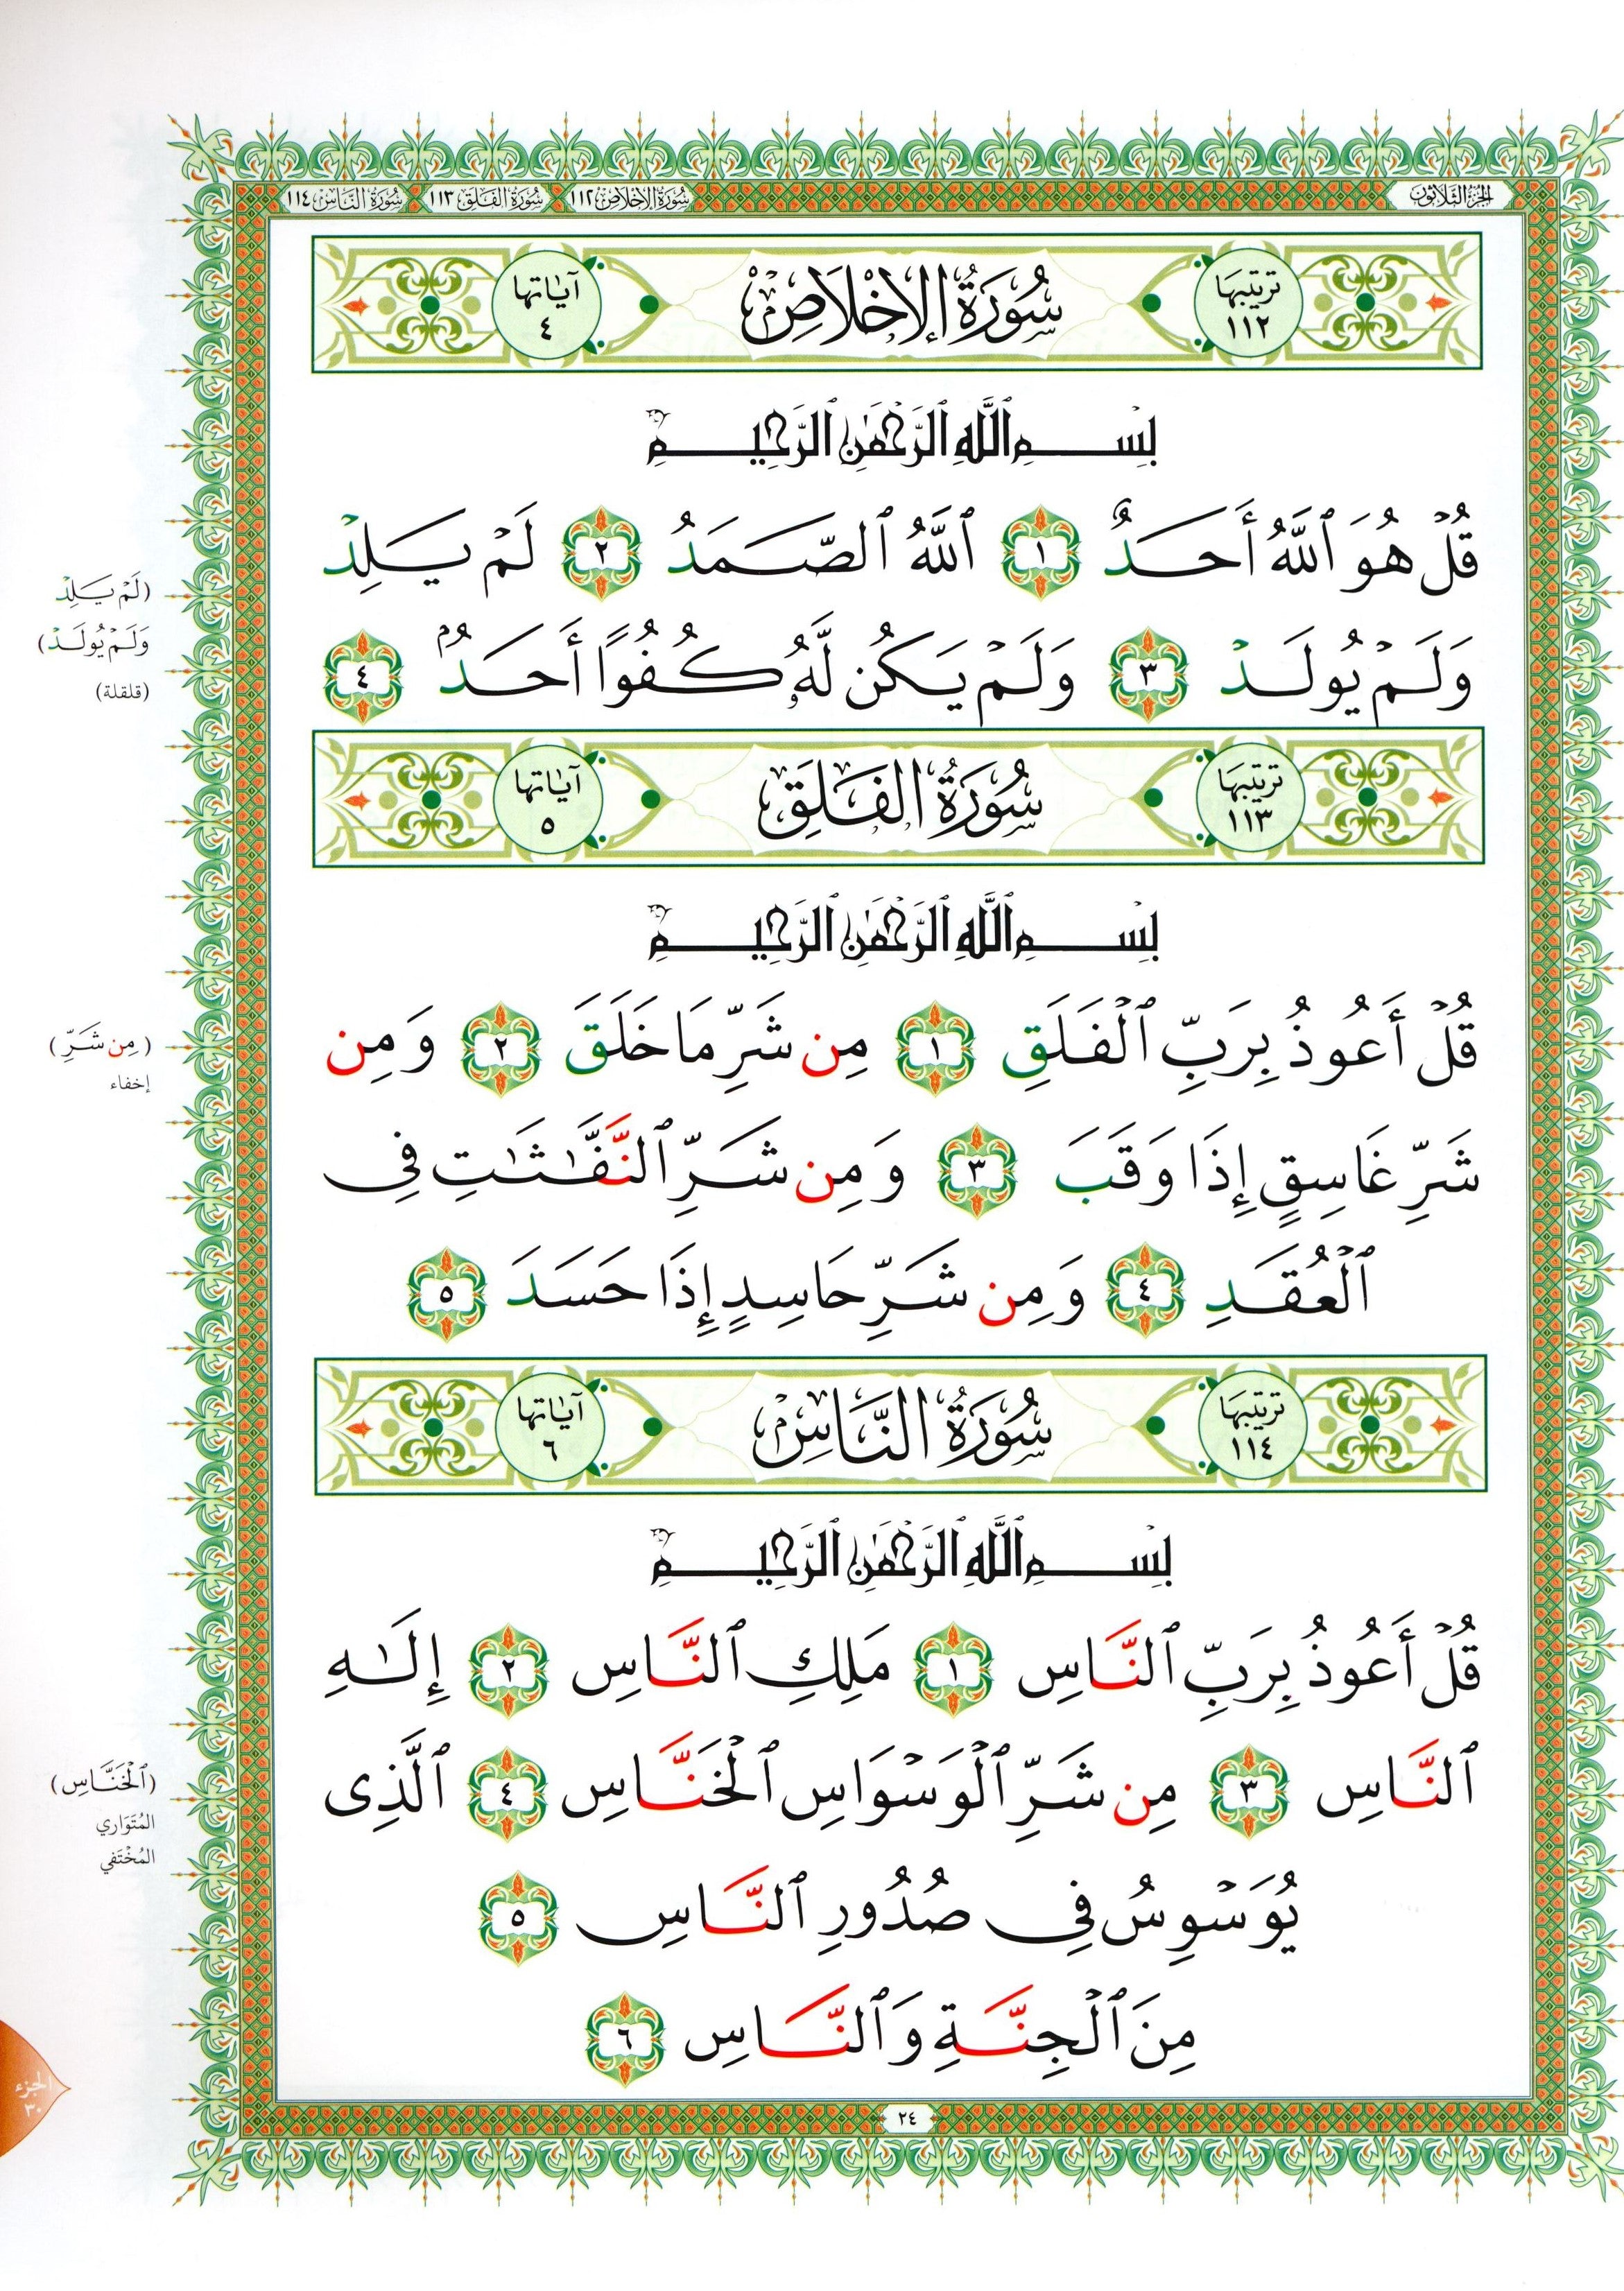 الجزء الثلاثون
سُورَةُ الإِخْلَاصِ ١١٢ سُورَةُ الفَلَقِ ١١٣ سُورَةُ النَّاسِ ١١٤
ترتيبها ١١٢ سُورَةُ الإِخْلَاصِ آياتها ٤
بِسْمِ ٱللَّهِ ٱلرَّحْمَٰنِ ٱلرَّحِيمِ
قُلْ هُوَ ٱللَّهُ أَحَدٌ ١ ٱللَّهُ ٱلصَّمَدُ ٢ لَمْ يَلِدْ
وَلَمْ يُولَدْ ٣ وَلَمْ يَكُن لَّهُۥ كُفُوًا أَحَدٌۢ ٤
(لَمْ يَلِدْ
وَلَمْ يُولَدْ)
(قلقلة)
ترتيبها ١١٣ سُورَةُ الفَلَقِ آياتها ٥
بِسْمِ ٱللَّهِ ٱلرَّحْمَٰنِ ٱلرَّحِيمِ
قُلْ أَعُوذُ بِرَبِّ ٱلْفَلَقِ ١ مِن شَرِّ مَا خَلَقَ ٢ وَمِن
شَرِّ غَاسِقٍ إِذَا وَقَبَ ٣ وَمِن شَرِّ ٱلنَّفَّٰثَٰتِ فِى
ٱلْعُقَدِ ٤ وَمِن شَرِّ حَاسِدٍ إِذَا حَسَدَ ٥
(مِن شَرِّ)
إخفاء
ترتيبها ١١٤ سُورَةُ النَّاسِ آياتها ٦
بِسْمِ ٱللَّهِ ٱلرَّحْمَٰنِ ٱلرَّحِيمِ
قُلْ أَعُوذُ بِرَبِّ ٱلنَّاسِ ١ مَلِكِ ٱلنَّاسِ ٢ إِلَٰهِ
ٱلنَّاسِ ٣ مِن شَرِّ ٱلْوَسْوَاسِ ٱلْخَنَّاسِ ٤ ٱلَّذِى
يُوَسْوِسُ فِى صُدُورِ ٱلنَّاسِ ٥
مِنَ ٱلْجِنَّةِ وَٱلنَّاسِ ٦
(ٱلْخَنَّاسِ)
المُتَوَاري
المُخْتَفي
الجزء
٣٠
٢٤